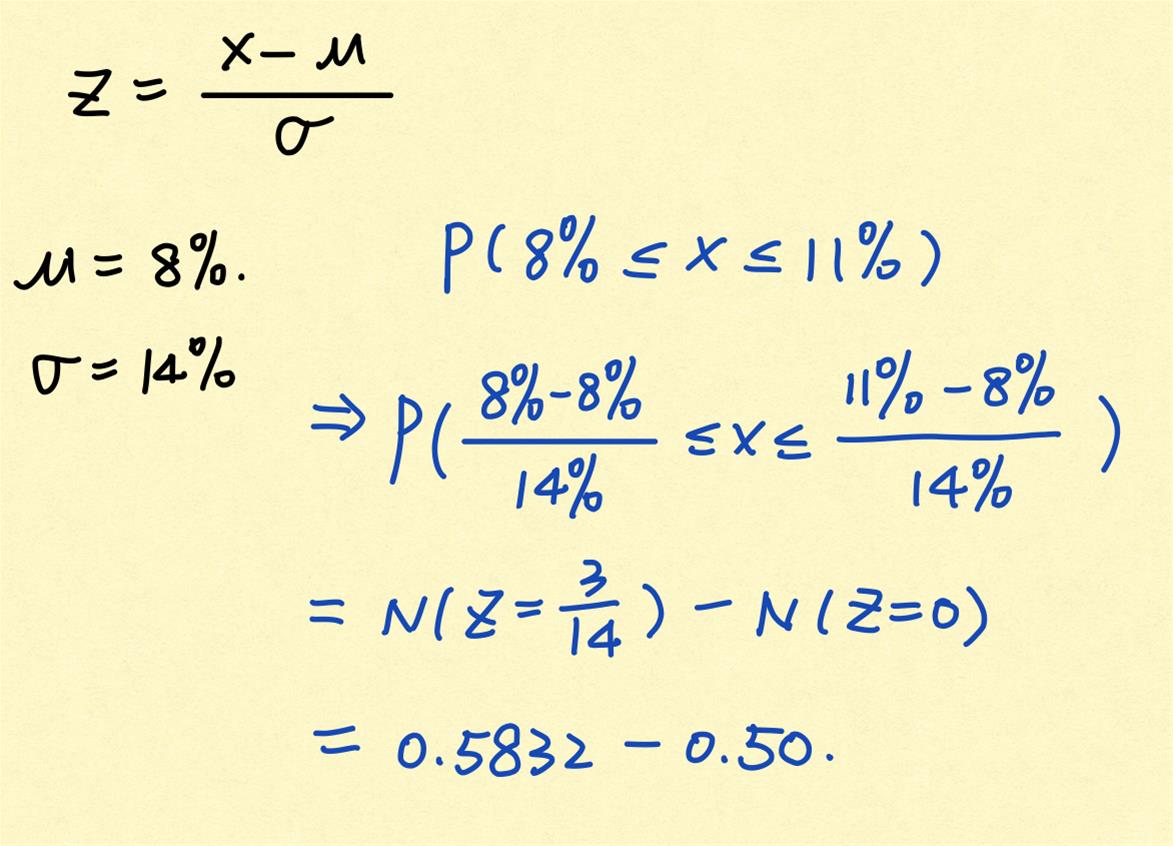 Z = (x − μ) / σ
μ = 8%.
P(8% ≤ x ≤ 11%)
σ = 14%
⇒ P((8%-8%) / 14% ≤ x ≤ (11% − 8%) / 14%)
= N(Z = 3/14) − N(Z=0)
= 0.5832 − 0.50.